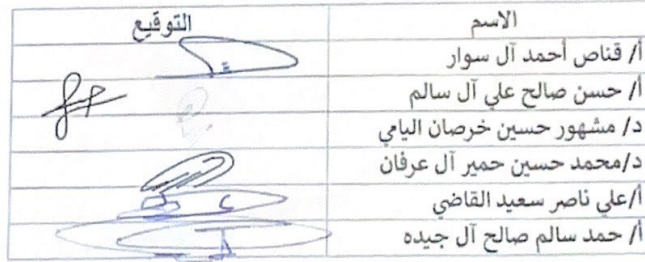 الاسم التوقيع
أ/ قناص أحمد آل سوار
أ/ حسن صالح علي آل سالم
د/ مشهور حسين خرصان اليامي
د/محمد حسين حمير آل عرفان
أ/علي ناصر سعيد القاضي
أ/ حمد سالم صالح آل جيده